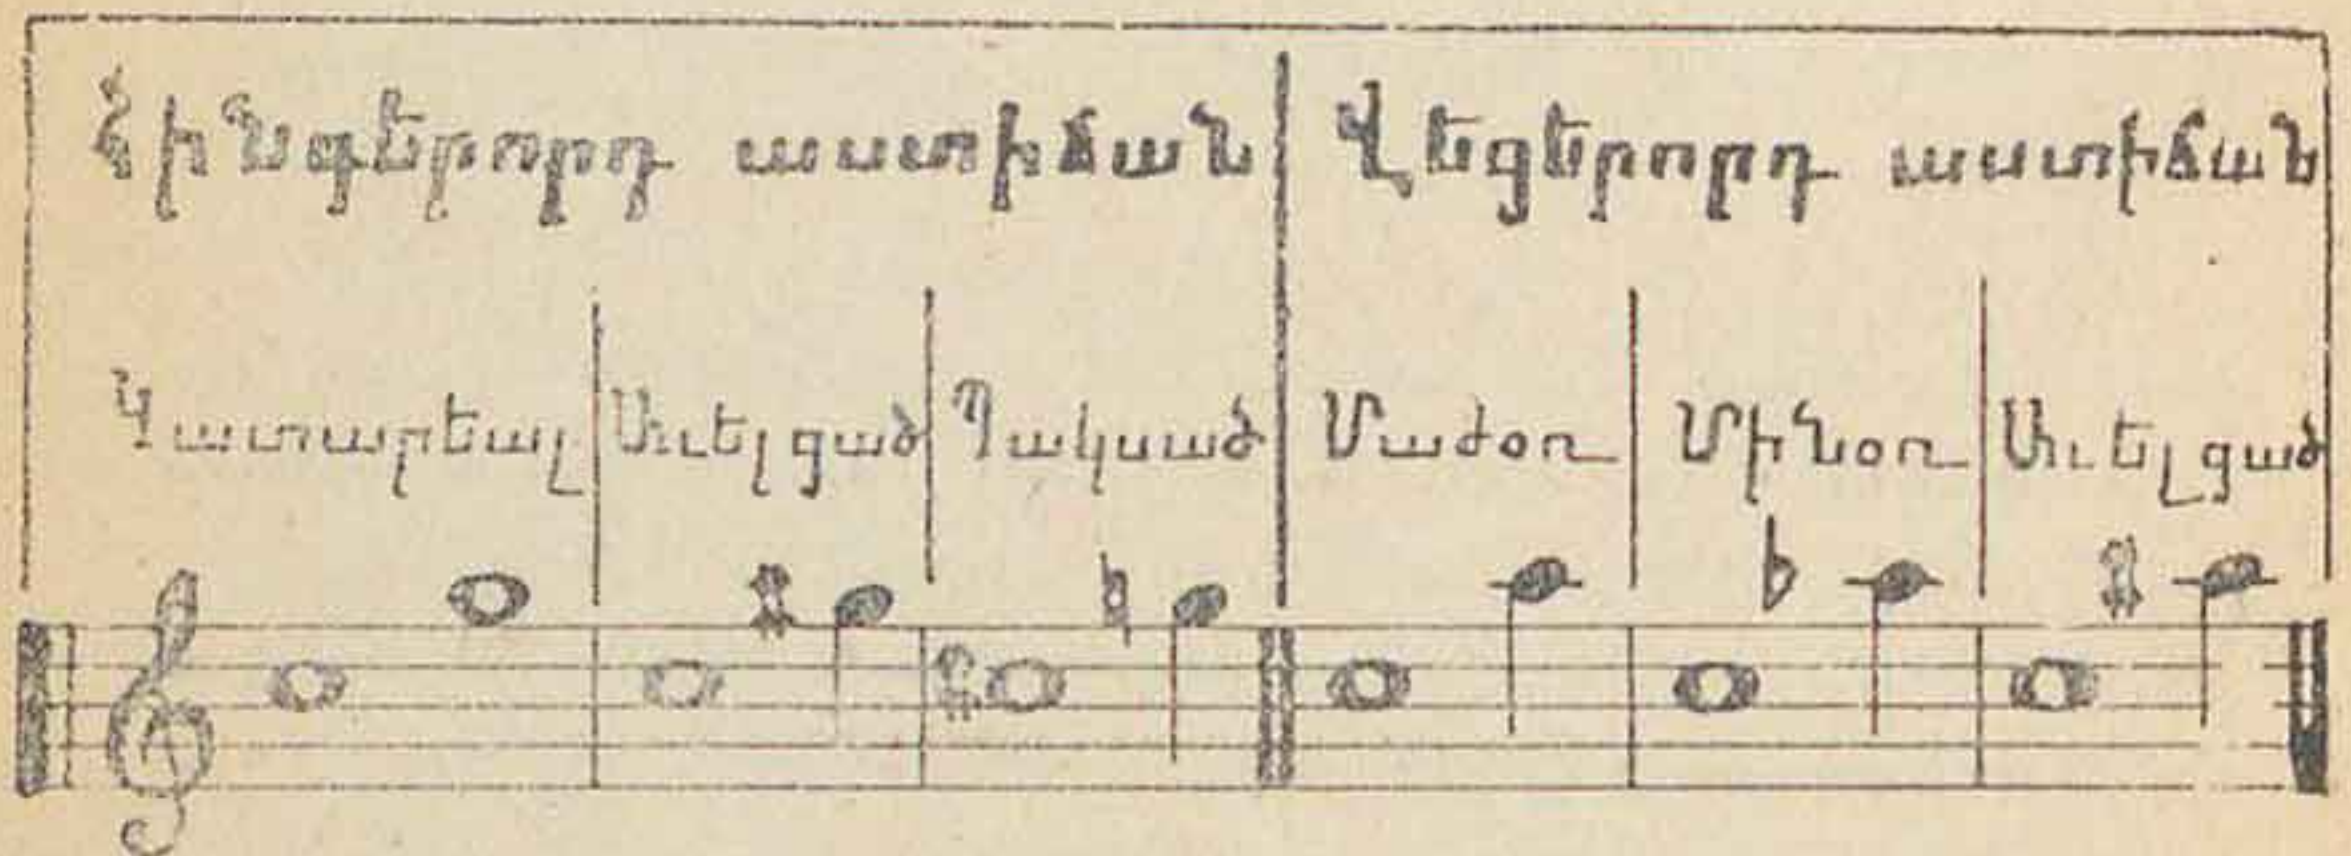 Հինգերորդ աստիճան Վեցերորդ աստիճան
Կատարեալ Աւելցած Պակսած Մաժօռ Մինօռ Աւելցած